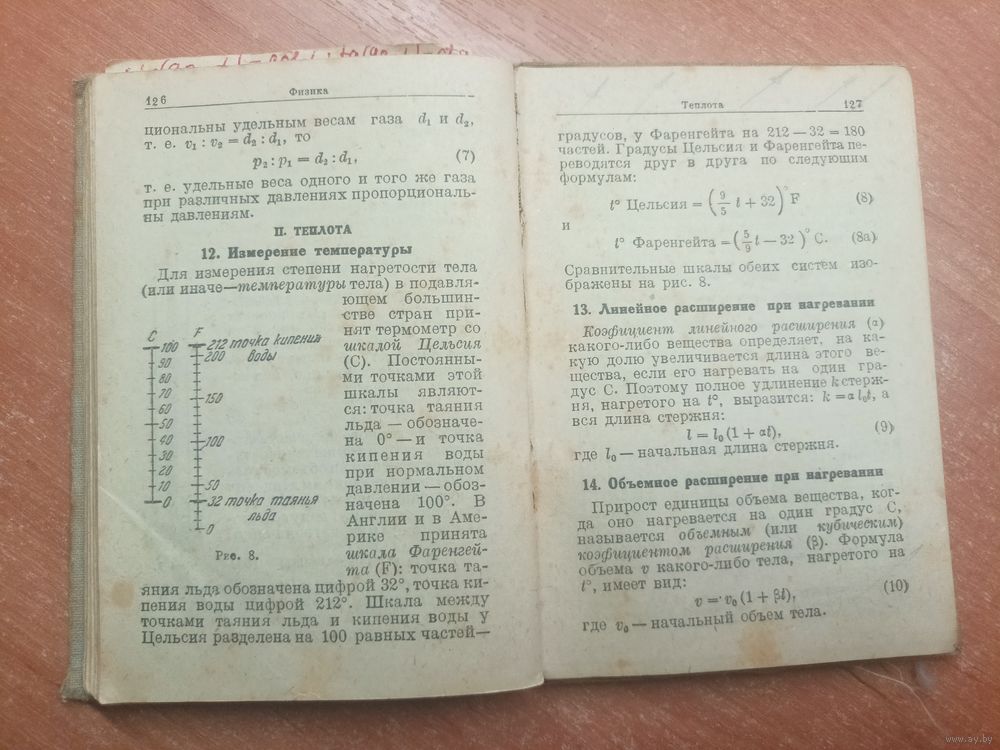 126
Физика
циональны удельным весам газа d₁ и d₂,
т. е. v₁ : v₂ = d₂ : d₁, то
p₂ : p₁ = d₂ : d₁, (7)
т. е. удельные веса одного и того же газа
при различных давлениях пропорциональ-
ны давлениям.
II. ТЕПЛОТА
12. Измерение температуры
Для измерения степени нагретости тела
(или иначе—температуры тела) в подавля-
ющем большин-
стве стран при-
нят термометр со
шкалой Цельсия
(С). Постоянны-
ми точками этой
шкалы являют-
ся: точка таяния
льда — обозначе-
на 0° — и точка
кипения воды
при нормальном
давлении — обоз-
начена 100°. В
Англии и в Аме-
рике принята
шкала Фаренгей-
та (F): точка та-
яния льда обозначена цифрой 32°, точка ки-
пения воды цифрой 212°. Шкала между
точками таяния льда и кипения воды у
Цельсия разделена на 100 равных частей—
C F
100
90
80
70
60
50
40
30
20
10
0
212 точка кипения
200 воды
150
100
50
32 точка таянья
льда
0
Рис. 8.
Теплота
127
градусов, у Фаренгейта на 212 — 32 = 180
частей. Градусы Цельсия и Фаренгейта пе-
реводятся друг в друга по следующим
формулам:
t° Цельсия = (9/5 t + 32)° F (8)
и
t° Фаренгейта = (5/9 t — 32)° C. (8a)
Сравнительные шкалы обеих систем изо-
бражены на рис. 8.
13. Линейное расширение при нагревании
Коэфициент линейного расширения (α)
какого-либо вещества определяет, на ка-
кую долю увеличивается длина этого ве-
щества, если его нагревать на один гра-
дус С. Поэтому полное удлинение k стерж-
ня, нагретого на t°, выразится: k = α l₀t, а
вся длина стержня:
l = l₀ (1 + αt), (9)
где l₀ — начальная длина стержня.
14. Объемное расширение при нагревании
Прирост единицы объема вещества, ког-
да оно нагревается на один градус С,
называется объемным (или кубическим)
коэфициентом расширения (β). Формула
объема v какого-либо тела, нагретого на
t°, имеет вид:
v = v₀ (1 + βt), (10)
где v₀ — начальный объем тела.
www.ay.by